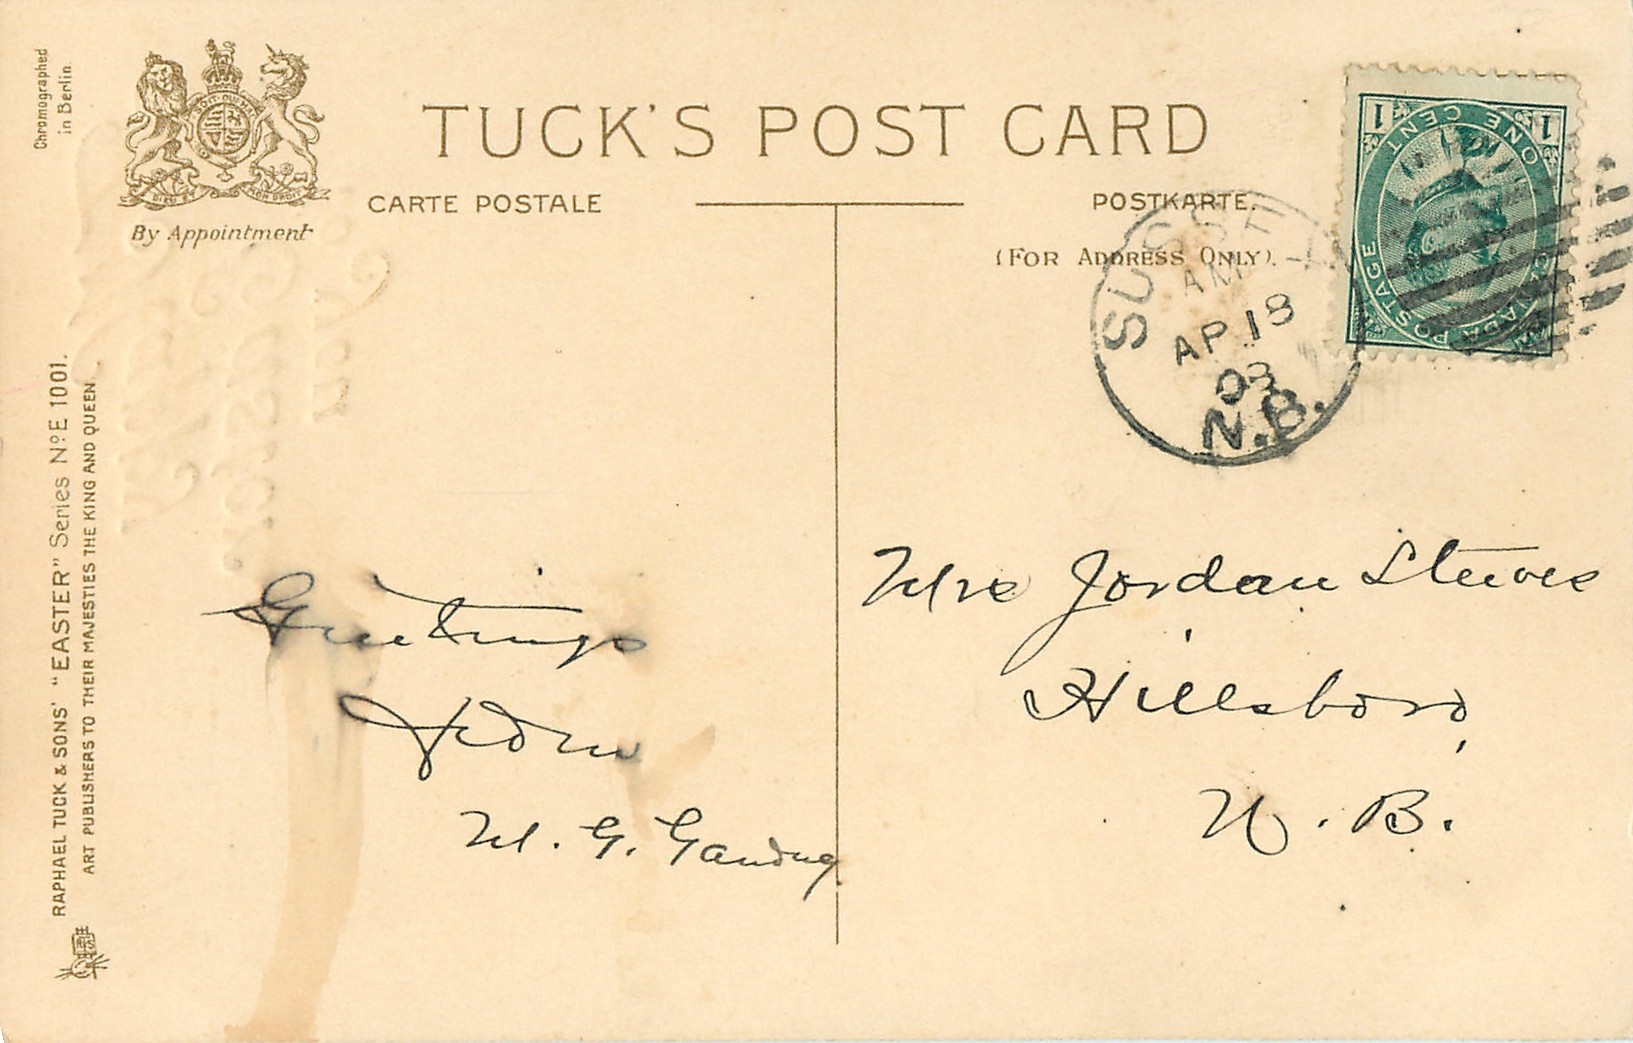 Chromographed
in Berlin.
DIEU ET MON DROIT
By Appointment
TUCK'S POST CARD
CARTE POSTALE
POSTKARTE.
(FOR ADDRESS ONLY).
ONE CENT
1 1
CANADA POSTAGE
SUSSEX
AM
AP 18
08
N.B.
RAPHAEL TUCK & SONS' "EASTER" Series Nº E 1001.
ART PUBLISHERS TO THEIR MAJESTIES THE KING AND QUEEN.
Greetings
from
M. G.
Mrs Jordan Steeves
Hillsboro,
N. B.